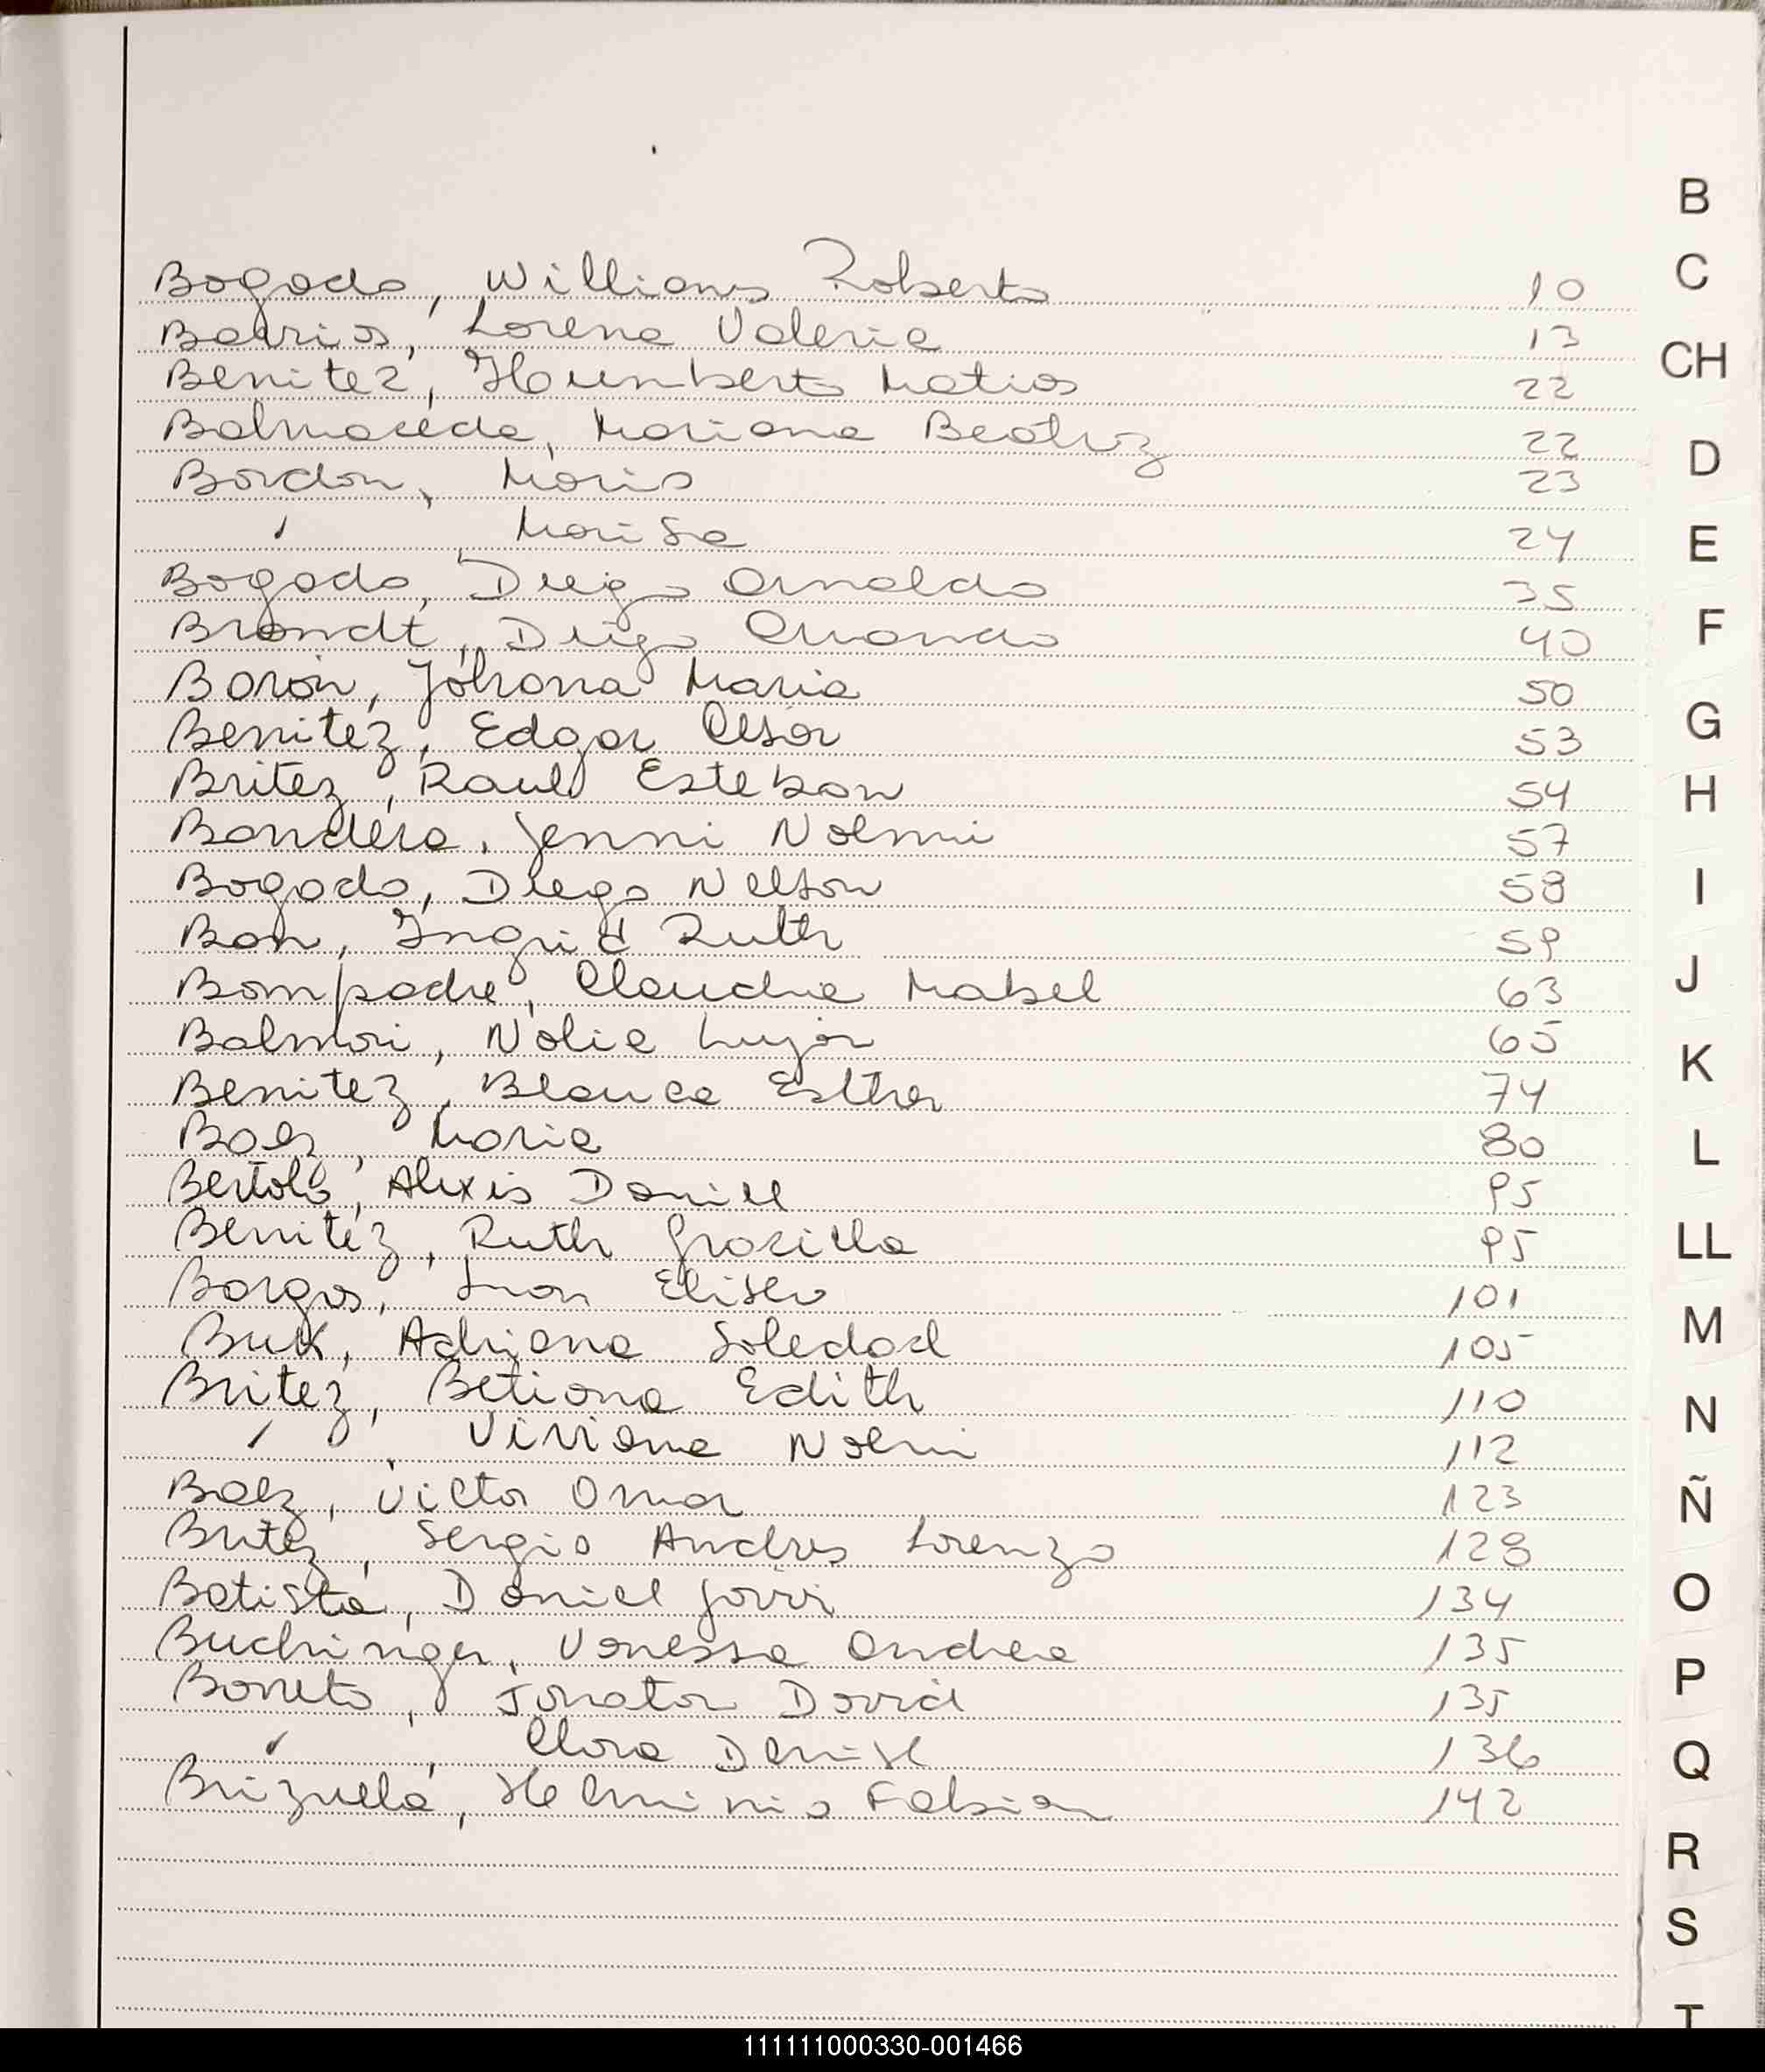 Bogado, Willians Roberto 10
Barrios, Lorena Valeria 13
Benitez, Humberto Matias 22
Balmaceda, Mariana Beatriz 22
Bordon, Mario 23
" Marisa 24
Bogado, Diego Arnaldo 35
Brandt, Diego 40
Boron, Johona Maria 50
Benitez, Edgar Cesar 53
Britez, Raul Esteban 54
Bandera, Jenni Noemi 57
Bogado, Diego Nelson 58
Bon, Ingrid Ruth 59
Bompadre, Claudia Mabel 63
Balmori, Nolia Lujan 65
Benitez, Blanca Esther 74
Baez, Maria 80
Bertolo, Alexis Daniel 95
Benitez, Ruth Graciella 95
Borgos, Eliseo 101
Buk, Adriana Soledad 105
Britez, Betiana Edith 110
" , Viviana Noemi 112
Baez, Victor Omar 123
Britez, Sergio Andres Lorenzo 128
Batista, Daniel 134
Buchinger, Vanessa Andrea 135
Boneto, Jonatan David 135
" , Clara Denise 136
Brizuela, Herminio Fabian 142
B
C
CH
D
E
F
G
H
I
J
K
L
LL
M
N
Ñ
O
P
Q
R
S
T
111111000330-001466